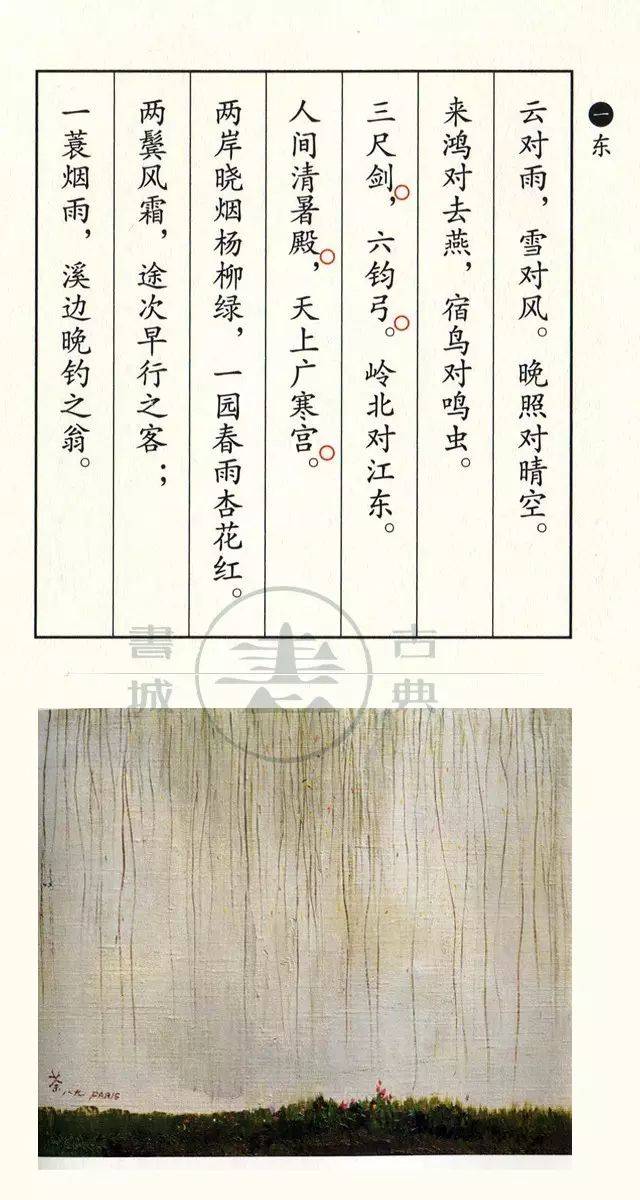 一 东
云对雨，雪对风。晚照对晴空。
来鸿对去燕，宿鸟对鸣虫。
三尺剑，六钧弓。岭北对江东。
人间清暑殿，天上广寒宫。
两岸晓烟杨柳绿，一园春雨杏花红。
两鬓风霜，途次早行之客；
一蓑烟雨，溪边晚钓之翁。
古典
書城
荼 八九 PARIS